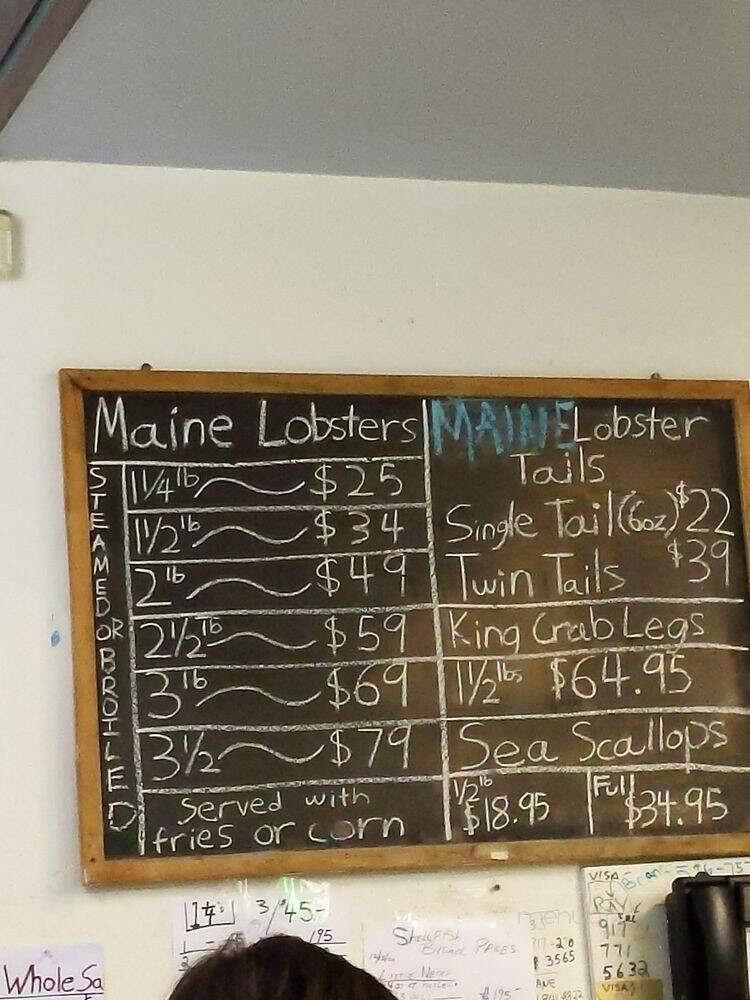 Maine Lobsters
STEAMED OR BROILED
1 1/4 lb $25
1 1/2 lb $34
2 lb $49
2 1/2 lb $59
3 lb $69
3 1/2 $79
Served with
fries or corn
MAINE Lobster
Tails
Single Tail (6oz) $22
Twin Tails $39
King Crab Legs
1 1/2 lbs $64.95
Sea Scallops
1/2 lb $18.95
Full $34.95
Whole Sa
3/45.-
195
SHELLFISH
PRICES
LITTLE NECKS
3565
VISA
RAY
917
771
5632
VISA